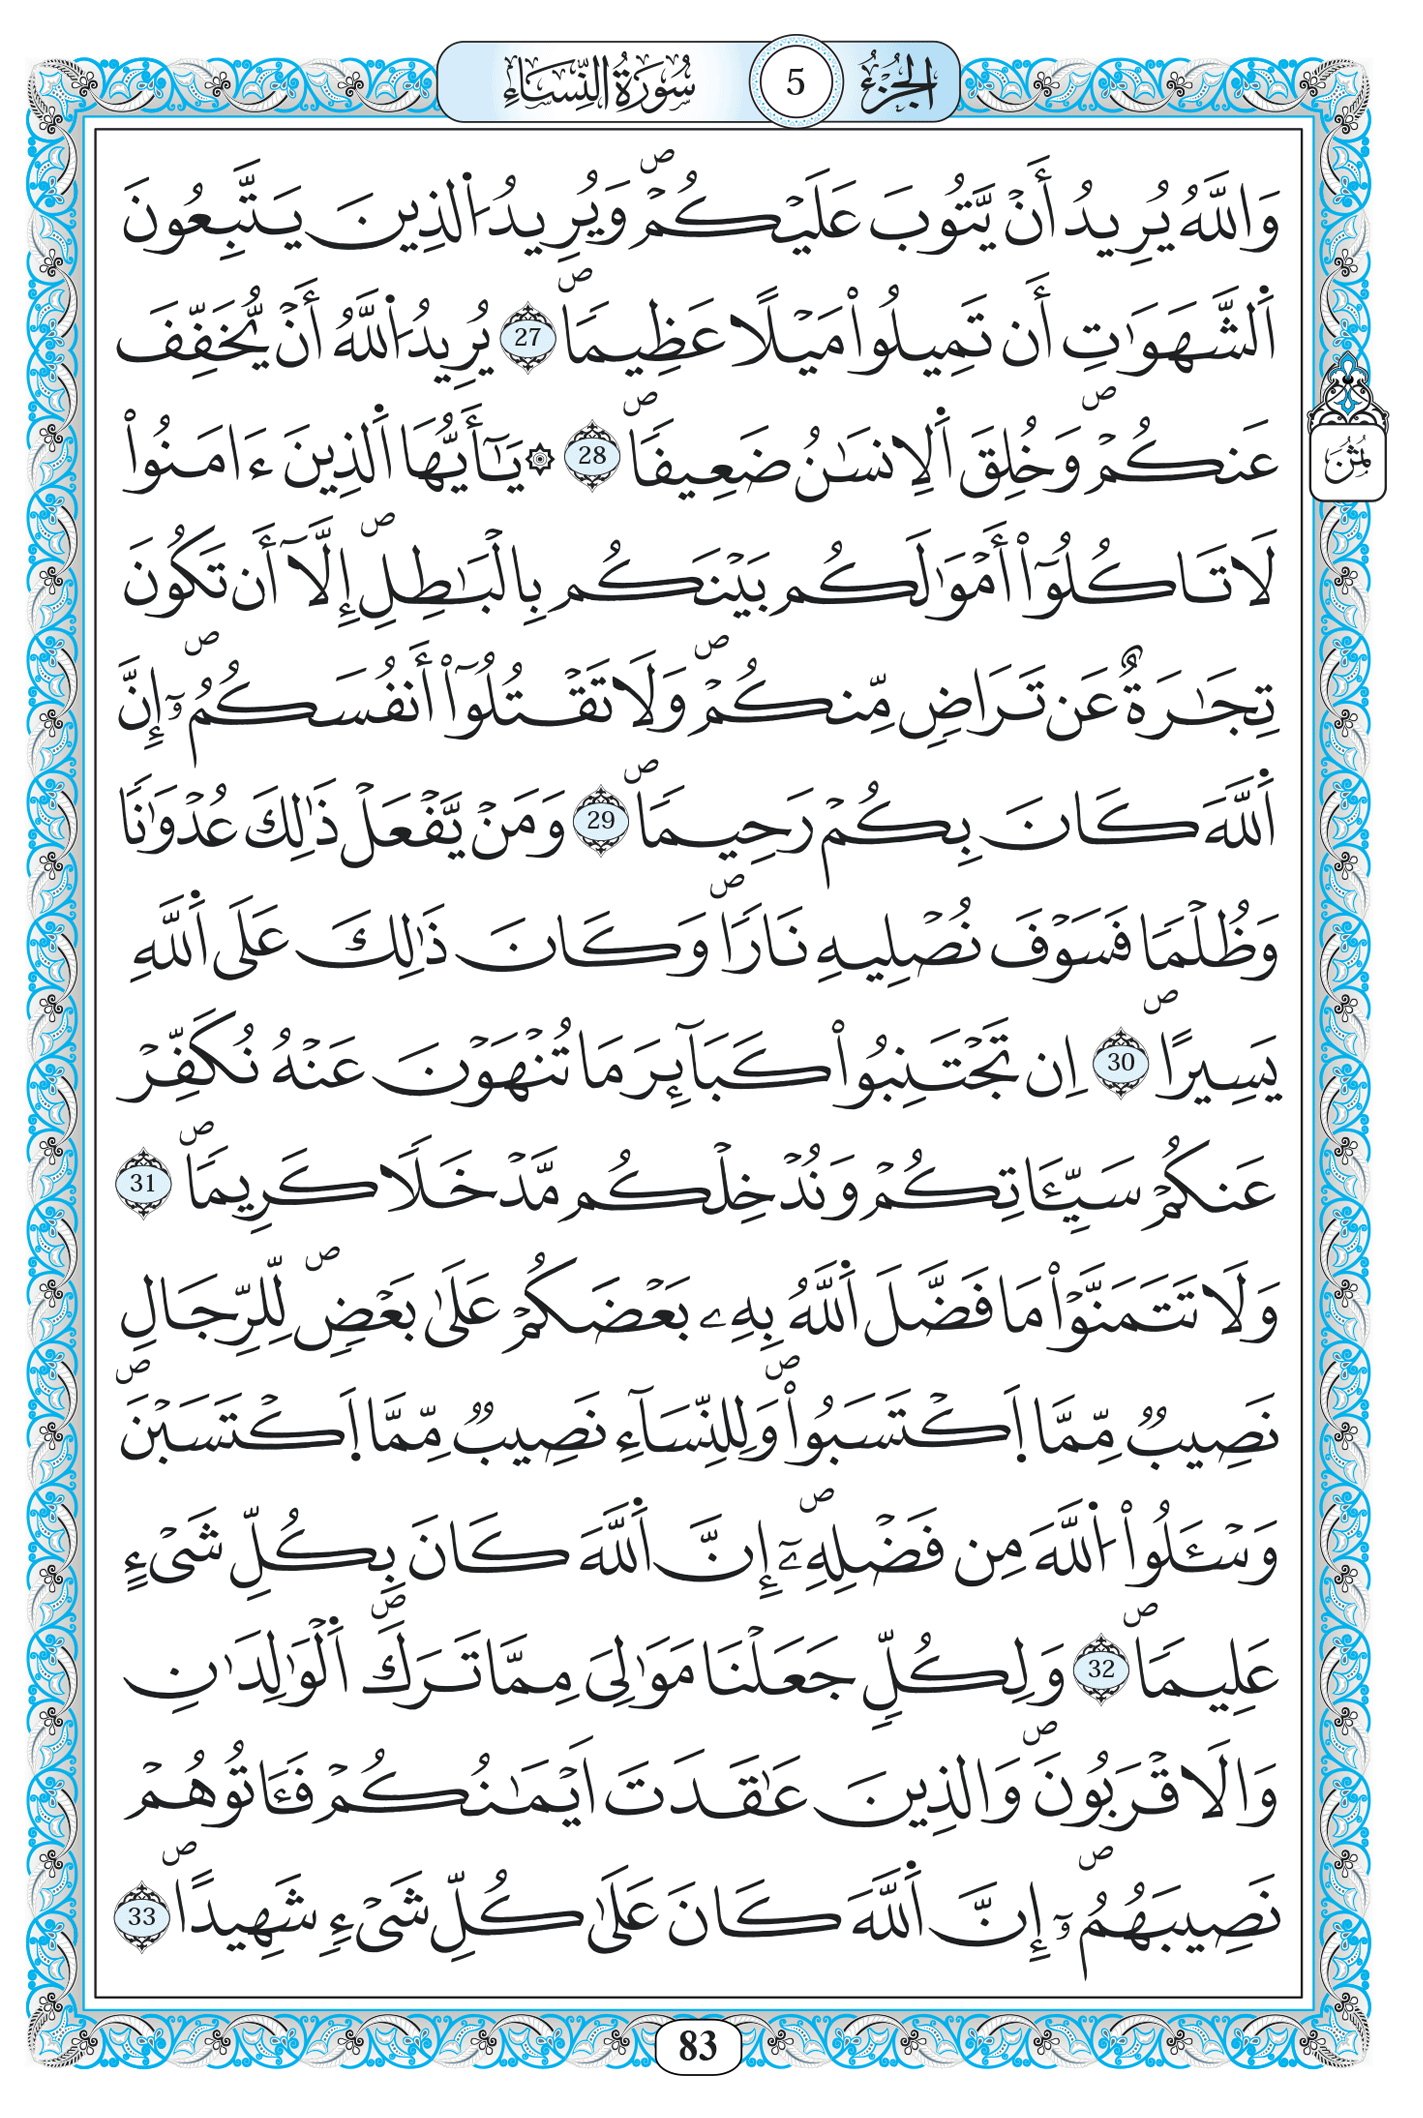 الجزء 5 سورة النساء
وَاللَّهُ يُرِيدُ أَنْ يَّتُوبَ عَلَيْكُمْۖ وَيُرِيدُ اُ۬لذِينَ يَتَّبِعُونَ
اَ۬لشَّهَوَٰتِ أَن تَمِيلُواْ مَيْلًا عَظِيمٗاۖ 27 يُرِيدُ اُ۬للَّهُ أَنْ يُّخَفِّفَ
عَنكُمْۖ وَخُلِقَ اَ۬لِانسَٰنُ ضَعِيفٗاۖ 28 ۞ يَٰٓأَيُّهَا اَ۬لذِينَ ءَامَنُواْ
ثمن
لَا تَاكُلُوٓاْ أَمْوَٰلَكُم بَيْنَكُم بِالْبَٰطِلِۖ إِلَّآ أَن تَكُونَ
تِجَٰرَةٌ عَن تَرَاضٖ مِّنكُمْۖ وَلَا تَقْتُلُوٓاْ أَنفُسَكُمُۥٓۖ إِنَّ
اَ۬للَّهَ كَانَ بِكُمْ رَحِيمٗاۖ 29 وَمَنْ يَّفْعَلْ ذَٰلِكَ عُدْوَٰنٗا
وَظُلْمٗا فَسَوْفَ نُصْلِيهِ نَارٗاۖ وَكَانَ ذَٰلِكَ عَلَى اَ۬للَّهِ
يَسِيرًاۖ 30 اِن تَجْتَنِبُواْ كَبَآئِرَ مَا تُنْهَوْنَ عَنْهُ نُكَفِّرْ
عَنكُمْ سَيِّـَٔاتِكُمْ وَنُدْخِلْكُم مَّدْخَلٗا كَرِيمٗاۖ 31
وَلَا تَتَمَنَّوْاْ مَا فَضَّلَ اَ۬للَّهُ بِهِۦ بَعْضَكُمْ عَلَىٰ بَعْضٖۖ لِّلرِّجَالِ
نَصِيبٞ مِّمَّا اَ۪كْتَسَبُواْۖ وَلِلنِّسَآءِ نَصِيبٞ مِّمَّا اَ۪كْتَسَبْنَۖ
وَسْـَٔلُواْ اُ۬للَّهَ مِن فَضْلِهِۦٓۖ إِنَّ اَ۬للَّهَ كَانَ بِكُلِّ شَيْءٍ
عَلِيمٗاۖ 32 وَلِكُلّٖ جَعَلْنَا مَوَٰلِيَ مِمَّا تَرَكَۖ اَ۬لْوَٰلِدَٰنِ
وَالَاقْرَبُونَۖ وَالذِينَ عَٰقَدَتَ اَيْمَٰنُكُمْ فَـَٔاتُوهُمْ
نَصِيبَهُمُۥٓۖ إِنَّ اَ۬للَّهَ كَانَ عَلَىٰ كُلِّ شَيْءٖ شَهِيدًاۖ 33
83